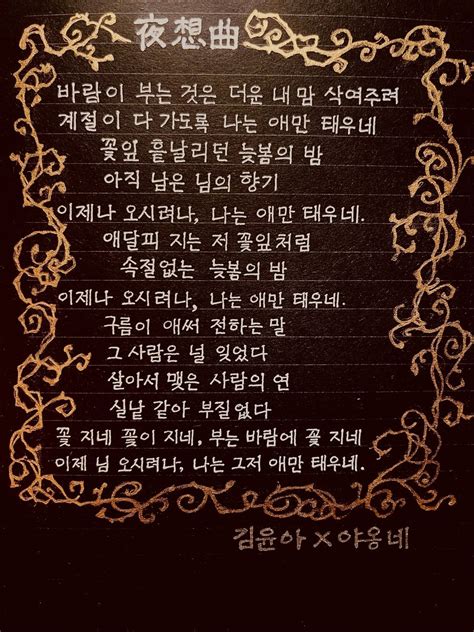 夜想曲
바람이 부는 것은 더운 내 맘 삭여주려
계절이 다 가도록 나는 애만 태우네
꽃잎 흩날리던 늦봄의 밤
아직 남은 님의 향기
이제나 오시려나, 나는 애만 태우네.
애달피 지는 저 꽃잎처럼
속절없는 늦봄의 밤
이제나 오시려나, 나는 애만 태우네.
구름이 애써 전하는 말
그 사람은 널 잊었다
살아서 맺은 사람의 연
실낱 같아 부질없다
꽃 지네 꽃이 지네, 부는 바람에 꽃 지네
이제 님 오시려나, 나는 그저 애만 태우네.
김윤아 X 야옹네